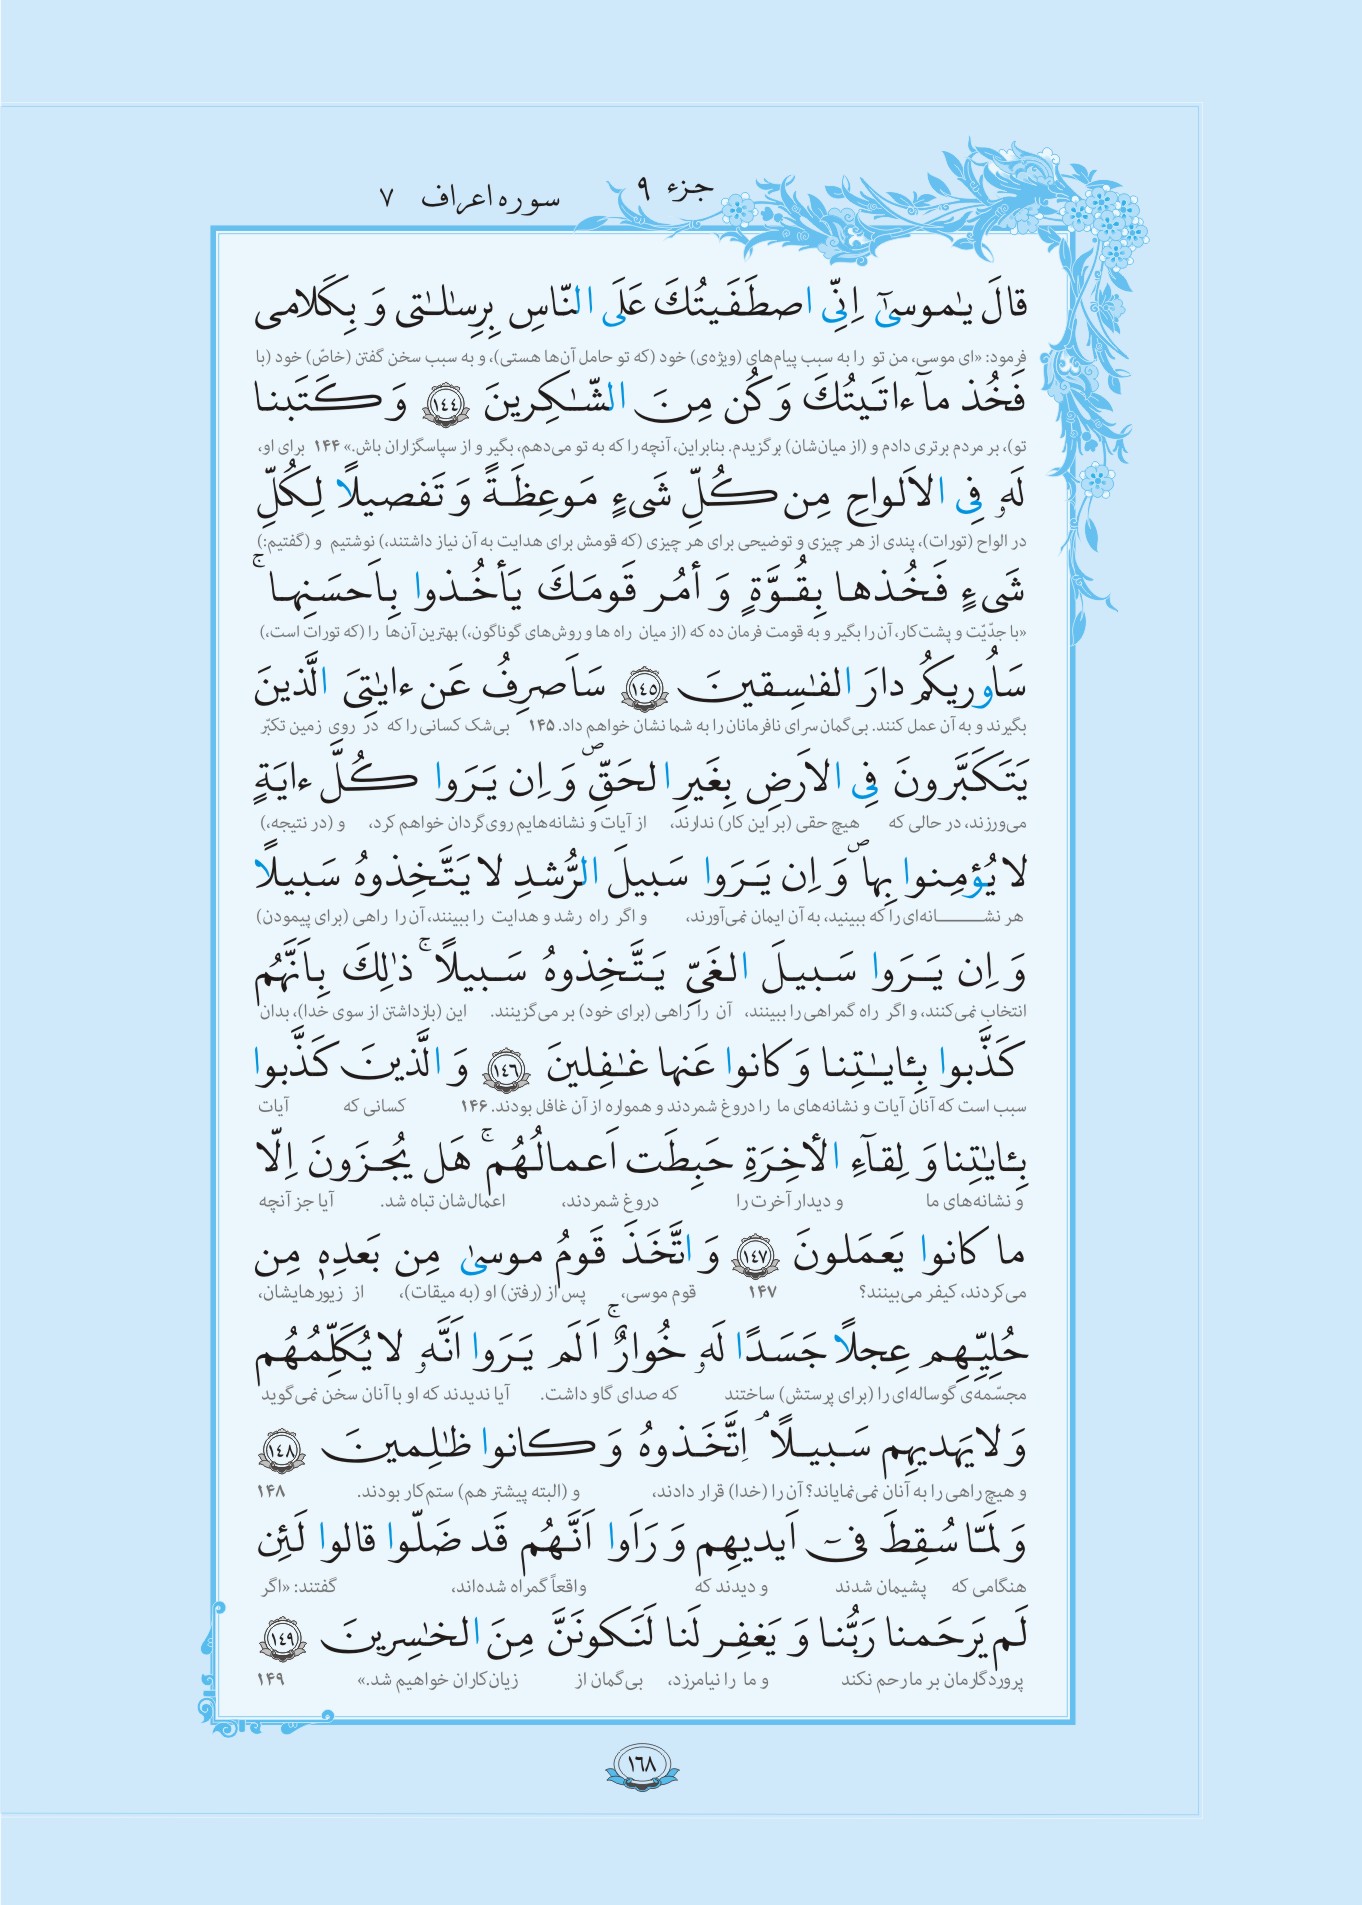 جزء ۹ سوره اعراف ۷
قالَ یٰموسیٰٓ اِنِّی اصطَفَیتُکَ عَلَی النّاسِ بِرِسٰلٰتی وَ بِکَلامی
فرمود: «ای موسی، من تو را به سبب پیام‌های (ویژه‌ی) خود (که تو حامل آن‌ها هستی)، و به سبب سخن گفتن (خاصّ) خود (با
فَخُذ مآ ءاتَیتُکَ وَ کُن مِنَ الشّٰکِرینَ ﴿١٤٤﴾ وَ کَتَبنا
تو)، بر مردم برتری دادم و (از میان‌شان) برگزیدم. بنابراین، آنچه را که به تو می‌دهم، بگیر و از سپاسگزاران باش.» ۱۴۴ برای او،
لَهٗ فِی الاَلواحِ مِن کُلِّ شَیءٍ مَوعِظَةً وَ تَفصیلًا لِکُلِّ
در الواح (تورات)، پندی از هر چیزی و توضیحی برای هر چیزی (که قومش برای هدایت به آن نیاز داشتند،) نوشتیم و (گفتیم:)
شَیءٍ فَخُذها بِقُوَّةٍ وَ أمُر قَومَکَ یَأخُذوا بِاَحسَنِها ۚ
«با جدّیّت و پشت‌کار، آن را بگیر و به قومت فرمان ده که (از میان راه ها و روش‌های گوناگون،) بهترین آن‌ها را (که تورات است،)
سَاُوریکُم دارَ الفٰسِقینَ ﴿١٤٥﴾ سَاَصرِفُ عَن ءایٰتِیَ الَّذینَ
بگیرند و به آن عمل کنند. بی‌گمان سرای نافرمانان را به شما نشان خواهم داد. ۱۴۵ بی‌شک کسانی را که در روی زمین تکبّر
یَتَکَبَّرونَ فِی الاَرضِ بِغَیرِ الحَقِّ ۖ وَ اِن یَرَوا کُلَّ ءایَةٍ
می‌ورزند، در حالی که هیچ حقی (بر این کار) ندارند، از آیات و نشانه‌هایم روی‌گردان خواهم کرد، و (در نتیجه،)
لا یُؤمِنوا بِها ۖ وَ اِن یَرَوا سَبیلَ الرُّشدِ لا یَتَّخِذوهُ سَبیلًا
هر نشـــــانه‌ای را که ببینید، به آن ایمان نمی‌آورند، و اگر راه رشد و هدایت را ببینند، آن را راهی (برای پیمودن)
وَ اِن یَرَوا سَبیلَ الغَیِّ یَتَّخِذوهُ سَبیلًا ۚ ذٰلِکَ بِاَنَّهُم
انتخاب نمی‌کنند، و اگر راه گمراهی را ببینند، آن را راهی (برای خود) بر می‌گزینند. این (بازداشتن از سوی خدا)، بدان
کَذَّبوا بِـٔایٰتِنا وَ کانوا عَنها غٰفِلینَ ﴿١٤٦﴾ وَ الَّذینَ کَذَّبوا
سبب است که آنان آیات و نشانه‌های ما را دروغ شمردند و همواره از آن غافل بودند. ۱۴۶ کسانی که آیات
بِـٔایٰتِنا وَ لِقآءِ الأخِرَةِ حَبِطَت اَعمالُهُم ۚ هَل یُجزَونَ اِلّا
و نشانه‌های ما و دیدار آخرت را دروغ شمردند، اعمال‌شان تباه شد. آیا جز آنچه
ما کانوا یَعمَلونَ ﴿١٤٧﴾ وَ اتَّخَذَ قَومُ موسیٰ مِن بَعدِهٖ مِن
می‌کردند، کیفر می‌بینند؟ ۱۴۷ قوم موسی، پس از (رفتن) او (به میقات)، از زیورهایشان،
حُلِیِّهِم عِجلًا جَسَدًا لَهٗ خُوارٌ ۚ اَلَم یَرَوا اَنَّهٗ لا یُکَلِّمُهُم
مجسّمه‌ی گوساله‌ای را (برای پرستش) ساختند که صدای گاو داشت. آیا ندیدند که او با آنان سخن نمی‌گوید
وَ لا یَهدیهِم سَبیلًا ۘ اِتَّخَذوهُ وَ کانوا ظٰلِمینَ ﴿١٤٨﴾
و هیچ راهی را به آنان نمی‌نمایاند؟ آن را (خدا) قرار دادند، و (البته پیشتر هم) ستم‌کار بودند. ۱۴۸
وَ لَمّا سُقِطَ فیٓ اَیدیهِم وَ رَاَوا اَنَّهُم قَد ضَلّوا قالوا لَئِن
هنگامی که پشیمان شدند و دیدند که واقعاً گمراه شده‌اند، گفتند: «اگر
لَم یَرحَمنا رَبُّنا وَ یَغفِر لَنا لَنَکونَنَّ مِنَ الخٰسِرینَ ﴿١٤٩﴾
پروردگارمان بر ما رحم نکند و ما را نیامرزد، بی‌گمان از زیان‌کاران خواهیم شد.» ۱۴۹
١٦٨